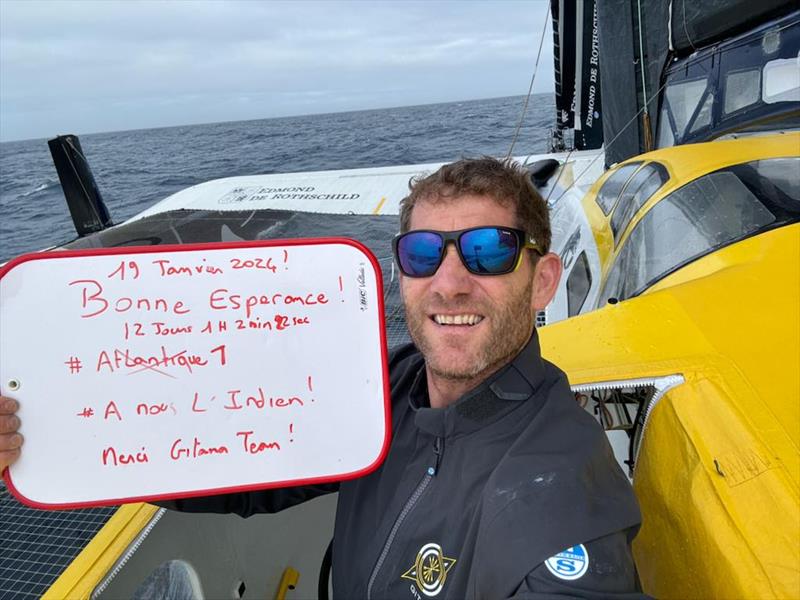 19 Janvier 2024!
Bonne Esperance!
12 Jours 1H 2min
# Atlantique 1
# A nous L'Indien!
Merci Gitana Team!
EDMOND DE ROTHSCHILD
EDMOND DE ROTHSCHILD
EDMOND